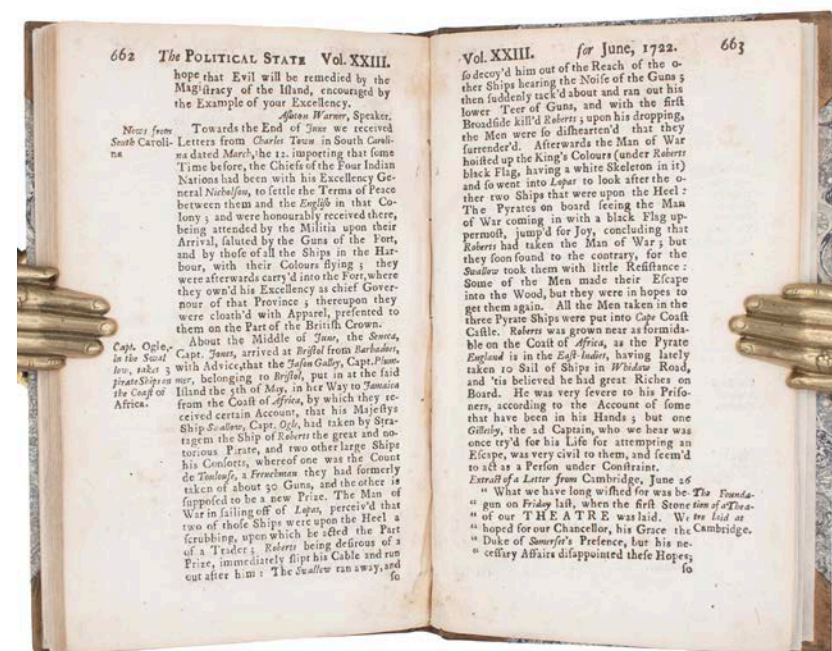 662 The POLITICAL STATE Vol. XXIII.
hope that Evil will be remedied by the
Magiſtracy of the Iſland, encouraged by
the Example of your Excellency.
Aſhton Warner, Speaker.
News from
South Caroli-
na
Towards the End of June we received
Letters from Charles Town in South Caroli-
na dated March, the 12. importing that ſome
Time before, the Chiefs of the Four Indian
Nations had been with his Excellency Ge-
neral Nicholſon, to ſettle the Terms of Peace
between them and the Engliſh in that Co-
lony ; and were honourably received there,
being attended by the Militia upon their
Arrival, ſaluted by the Guns of the Fort,
and by thoſe of all the Ships in the Har-
bour, with their Colours flying ; they
were afterwards carry'd into the Fort, where
they own'd his Excellency as chief Gover-
nour of that Province ; thereupon they
were cloath'd with Apparel, preſented to
them on the Part of the Britiſh Crown.
Capt. Ogle,
in the Swal
low, takes 3
pirate Ships on
the Coaſt of
Africa.
About the Middle of June, the Seneca,
Capt. Jones, arrived at Briſtol from Barbadoes,
with Advice, that the Jaſon Galley, Capt. Plum-
mer, belonging to Briſtol, put in at the ſaid
Iſland the 5th of May, in her Way to Jamaica
from the Coaſt of Africa, by which they re-
ceived certain Account, that his Majeſtys
Ship Swallow, Capt. Ogle, had taken by Stra-
tagem the Ship of Roberts the great and no-
torious Pirate, and two other large Ships
his Conſorts, whereof one was the Count
de Toulouſe, a Frenchman they had formerly
taken of about 30 Guns, and the other is
ſuppoſed to be a new Prize. The Man of
War in ſailing off of Lopas, perceiv'd that
two of thoſe Ships were upon the Heel a
ſcrubbing, upon which he acted the Part
of a Trader ; Roberts being deſirous of a
Prize, immediately ſlipt his Cable and run
out after him : The Swallow ran away, and
ſo
Vol. XXIII. for June, 1722. 663
ſo decoy'd him out of the Reach of the o-
ther Ships hearing the Noiſe of the Guns ;
then ſuddenly tack'd about and ran out his
lower Teer of Guns, and with the firſt
Broadſide kill'd Roberts ; upon his dropping,
the Men were ſo diſhearten'd that they
ſurrender'd. Afterwards the Man of War
hoiſted up the King's Colours (under Roberts
black Flag, having a white Skeleton in it)
and ſo went into Lopas to look after the o-
ther two Ships that were upon the Heel :
The Pyrates on board ſeeing the Man
of War coming in with a black Flag up-
permoſt, jump'd for Joy, concluding that
Roberts had taken the Man of War ; but
they ſoon found to the contrary, for the
Swallow took them with little Reſiſtance :
Some of the Men made their Eſcape
into the Wood, but they were in hopes to
get them again. All the Men taken in the
three Pyrate Ships were put into Cape Coaſt
Caſtle. Roberts was grown near as formida-
ble on the Coaſt of Africa, as the Pyrate
England is in the Eaſt-Indies, having lately
taken 10 Sail of Ships in Whidaw Road,
and 'tis believed he had great Riches on
Board. He was very ſevere to his Priſo-
ners, according to the Account of ſome
that have been in his Hands ; but one
Gilleſby, the 2d Captain, who we hear was
once try'd for his Life for attempting an
Eſcape, was very civil to them, and ſeem'd
to act as a Perſon under Conſtraint.
Extract of a Letter from Cambridge, June 26
" What we have long wiſhed for was be-
" gun on Friday laſt, when the firſt Stone
" of our THEATRE was laid. We
" hoped for our Chancellor, his Grace the
" Duke of Somerſet's Preſence, but his ne-
" ceſſary Affairs diſappointed theſe Hopes;
The Founda-
tion of a Thea-
tre laid at
Cambridge.
ſo